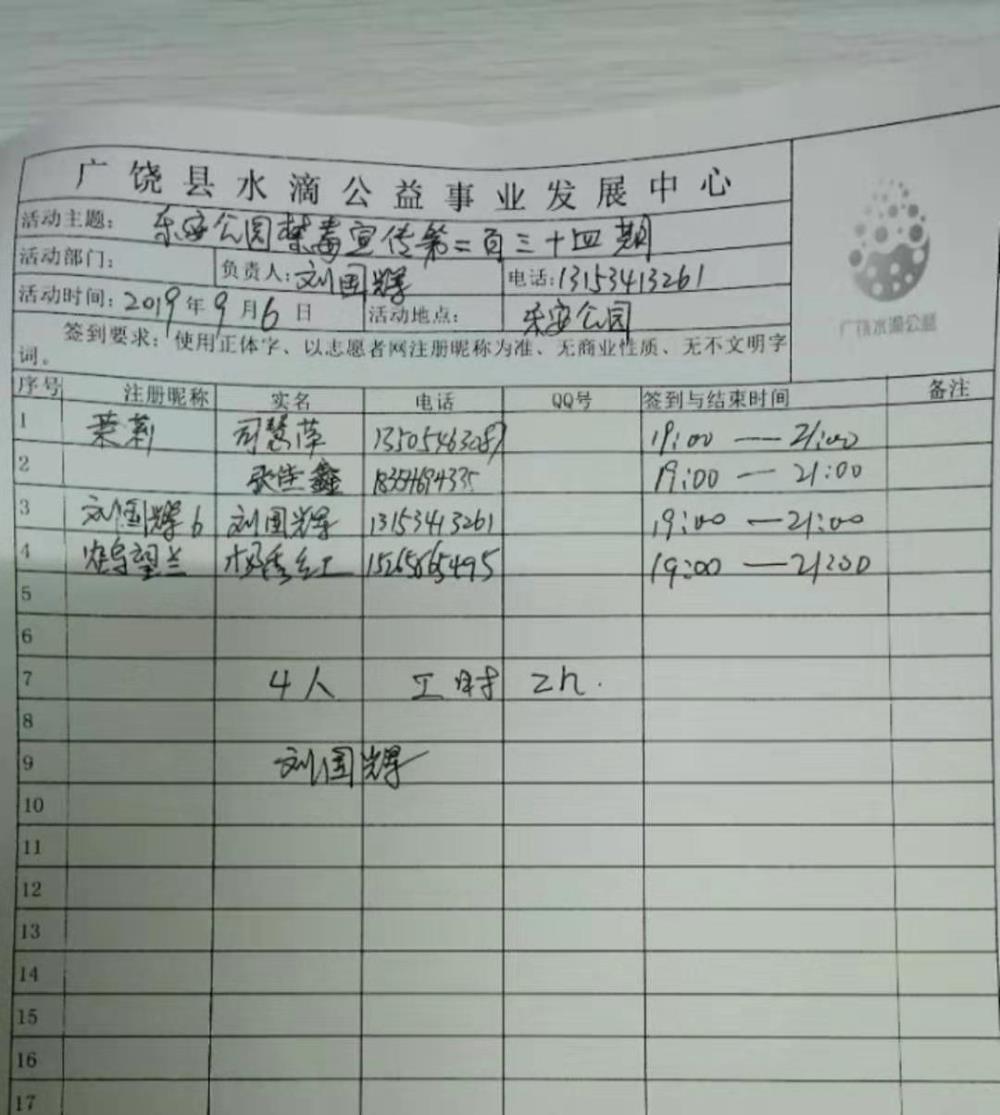 广饶县水滴公益事业发展中心
活动主题: 乐安公园禁毒宣传第二百三十四期
活动部门: 负责人: 刘国辉 电话: 13153413261
活动时间: 2019年9月6日 活动地点: 乐安公园
签到要求: 使用正体字、以志愿者网注册昵称为准、无商业性质、无不文明字
词。
广饶水滴公益
序号 注册昵称 实名 电话 QQ号 签到与结束时间 备注
1 茉莉 司慧萍 13505463087 19:00 — 21:00
2 张佳鑫 19:00 — 21:00
3 刘国辉6 刘国辉 13153413261 19:00 — 21:00
4 鹤望兰 杨秀红 15265865495 19:00 — 21:00
5
6
7 4人 工时 2h.
8
9 刘国辉
10
11
12
13
14
15
16
17